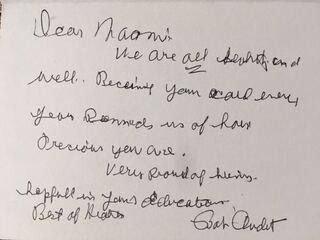 Dear Naomi
We are all healthy and
well. Receiving your card every
year Reminds us of how
Precious you are.
Very proud of being
helpfull in your education
Best of